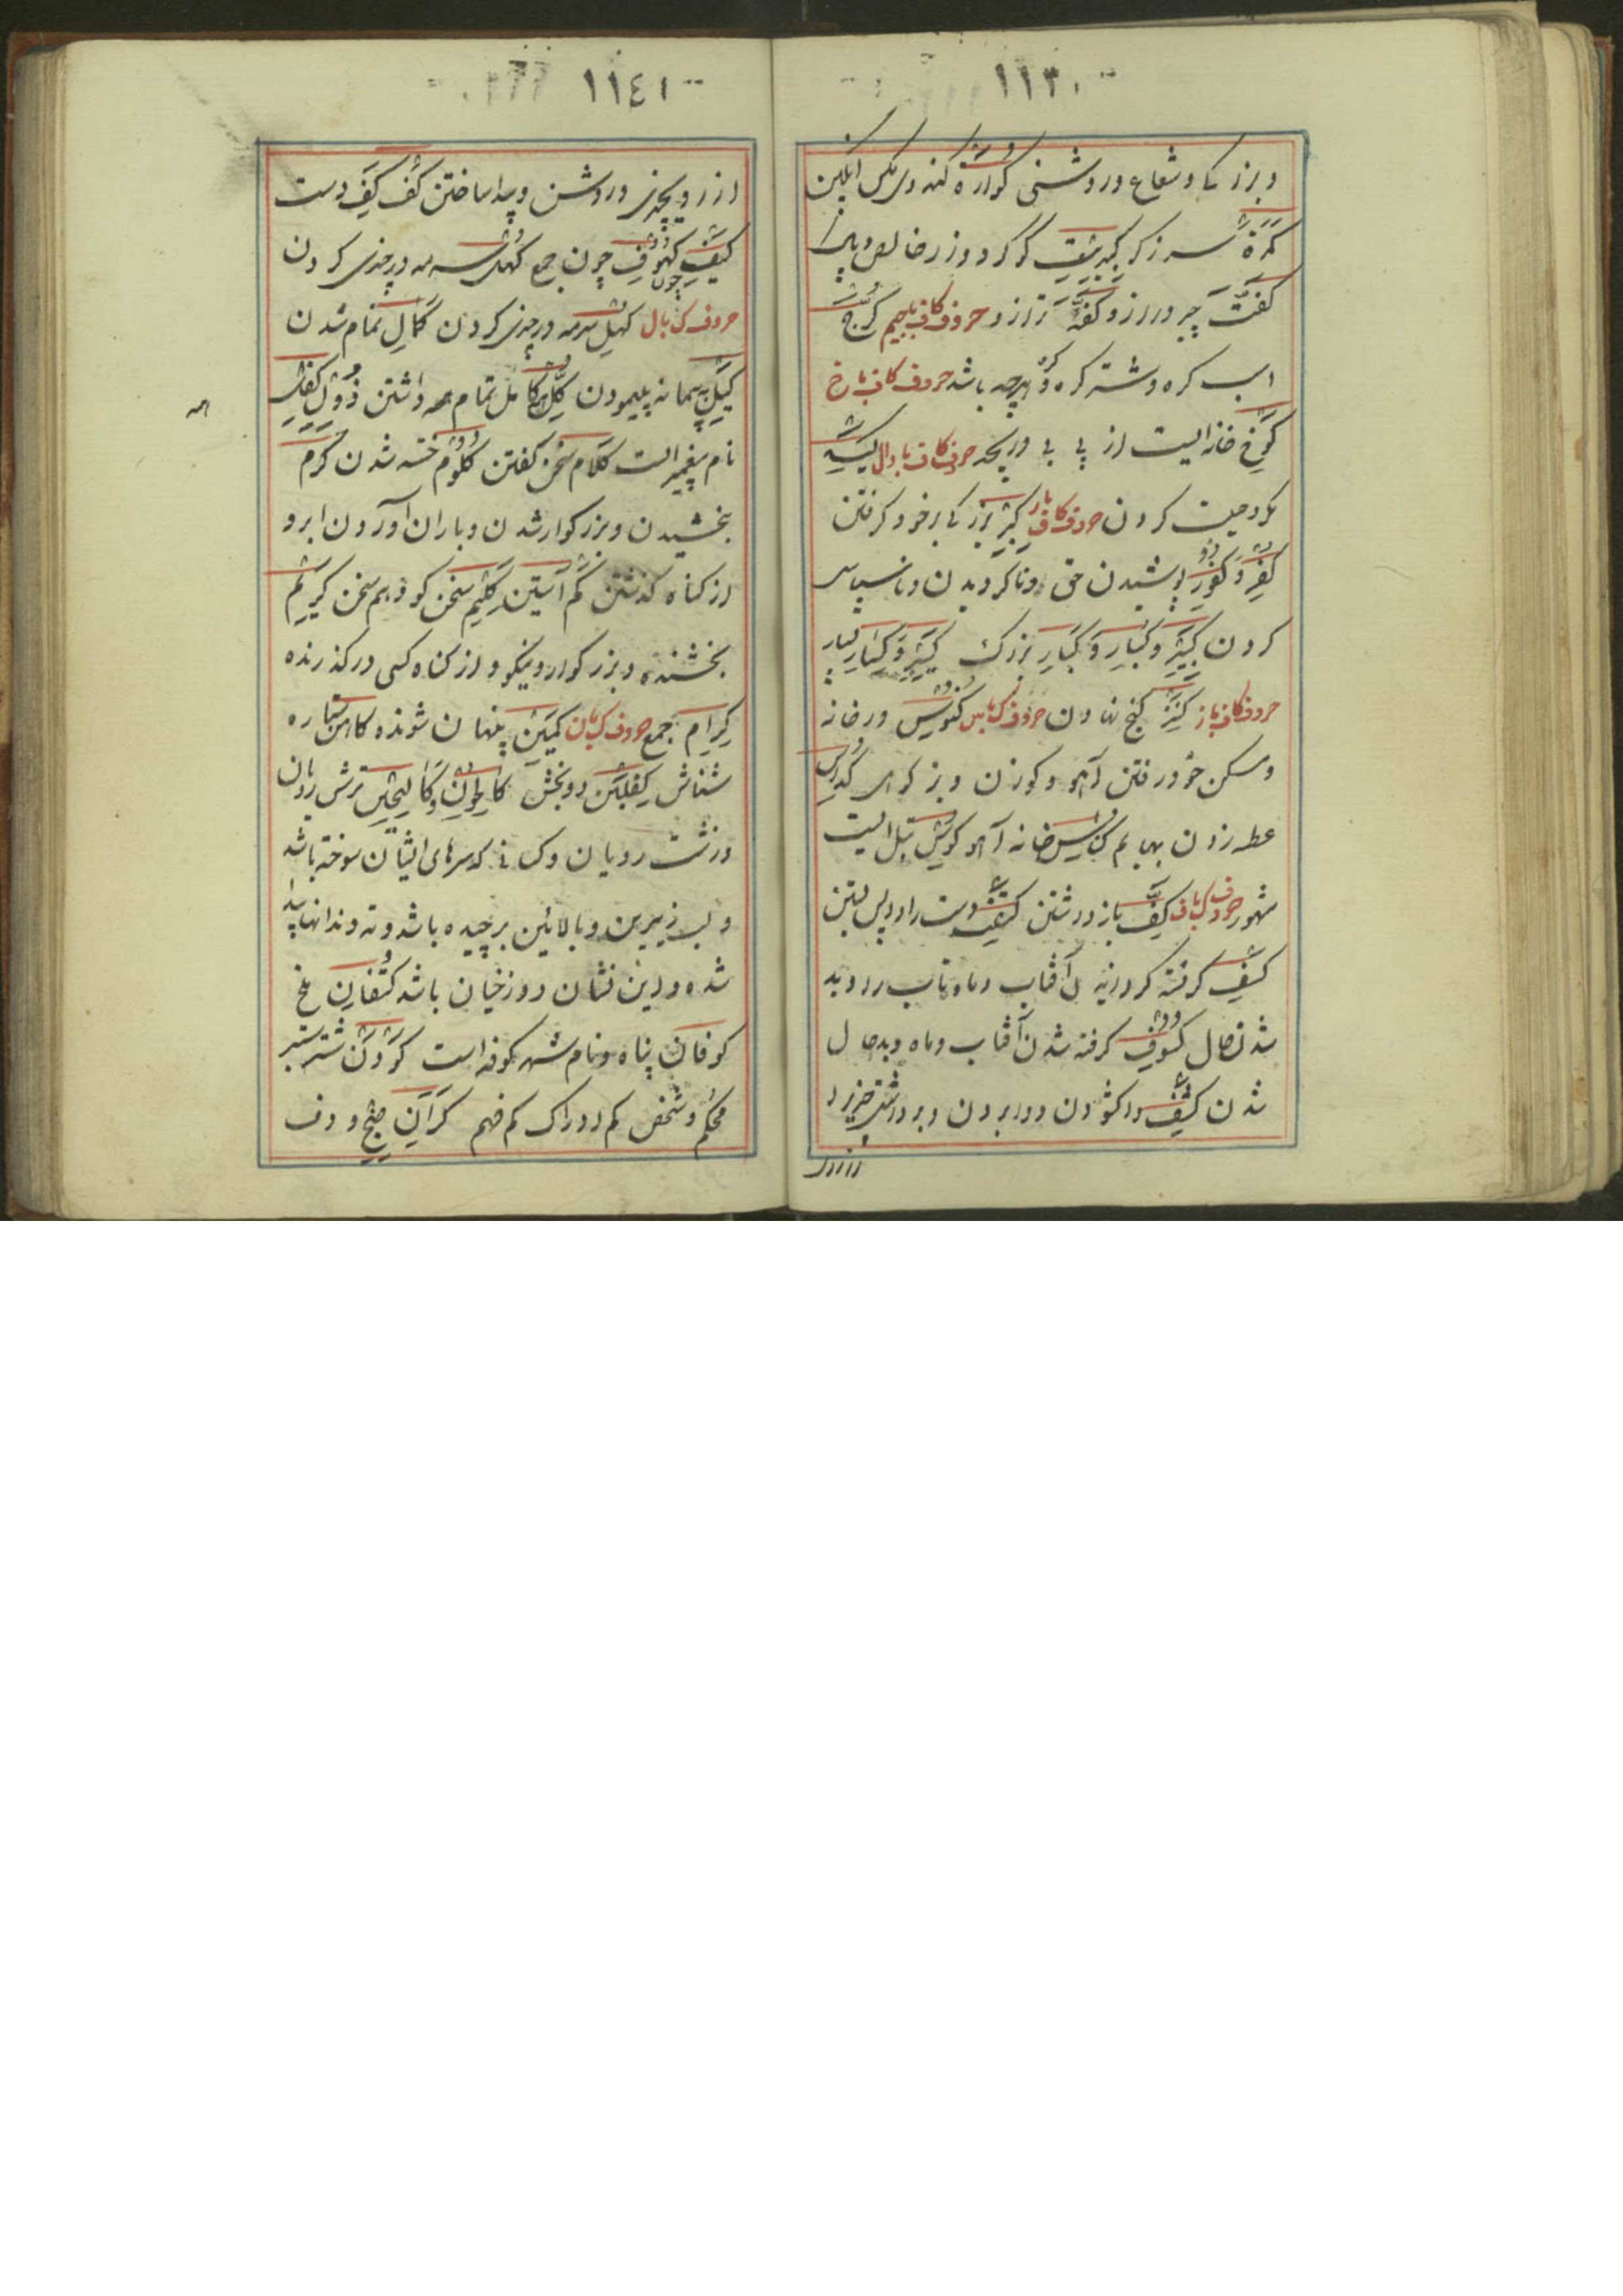 ١١٣٠
وبزرکا وشعاع وروشنی کواره کنه وی مکس انکبین
کمرة سر زکر کبریت کوکرد وزر خالص ویا
کفت چیز دراز وکفه ترازو حروف کاف بجیم کرج
اسب کره وشتر کره وهرچه باشد حروف کاف باخ
کوخ خانه ایست از پی بی وریچه حرف کاف بادال کید
مکر وحیت کردن حروف کاف بار کبر بزرکی برخود کرفتن
کفر وکفور پوشیدن حق وناکرویدن وناسپاسی
کردن کبیر وکبار وکبار بزرک کثیر وکثار بسیار
حروف کاف باز کنز کنج نهادن حروف ک باس کنوس در خانه
ومسکن خود رفتن آهو وکوزن وبز کوهی کداس
عطه زدن بهایم کناس خانه آهو کوش تبل ایست
مشهور حروف ک باف کف باز داشتن کتف دست را درپس بستن
کسف کرفته کردانیدن آفتاب وماهتاب را وبد
شدن حال کسوف کرفته شدن آفتاب وماه وبدحال
شدن کشف واکشودن ودا بردن وبرداشتن چیزرا
از زر
١١٤٠
از رویچیزی وروشن وپیدا ساختن کف کف دست
کیف کهوف چون جمع کهل سرمه درچیزی کردن
حروف ک بال کهل سرمه درچیزی کردن کمال تمام شدن
کیل پیمانه پیمودن کل کامل تمام همه داشتن ذوالکفل
نام پیغمبر است کلام سخن کفتن کلوم خسته شدن کرم
بخشیدن وبزرکوار شدن وباران آوردن ابر و
از کناه کذشتن کم آستین کلیم سخن کو وهم سخن کریم
بخشنده وبزرکوار ونیکو واز کناه کسی درکذرنده
کرام جمع حروف ک بان کمین پنهان شونده کاهن ستاره
شناس کفلین دو بخش کالحون وکالحین ترش رویان
وزشت رویان وکسانی که سرهای ایشان سوخته باشد
ولب زیرین وبالائین برچیده باشد وته دندانها پیدا
شده واین نشان دوزخیان باشد کتفان ملخ
کوفان پناه ونام شهر کوفه است کودن شتر ستبر
محکم وشخص کم ادراک کم فهم کران صنج ودف